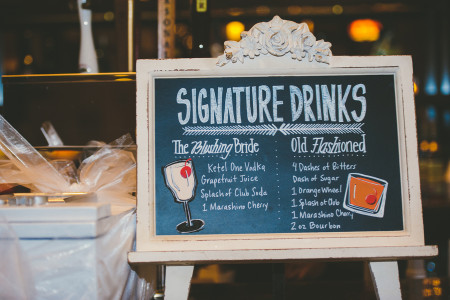 SIGNATURE DRINKS
The Blushing Bride
Ketel One Vodka
Grapefruit Juice
Splash of Club Soda
1 Marashino Cherry
Old Fashioned
4 Dashes of Bitters
Dash of Sugar
1 Orange Wheel
1 Splash of Club
1 Marashino Cherry
2 oz Bourbon